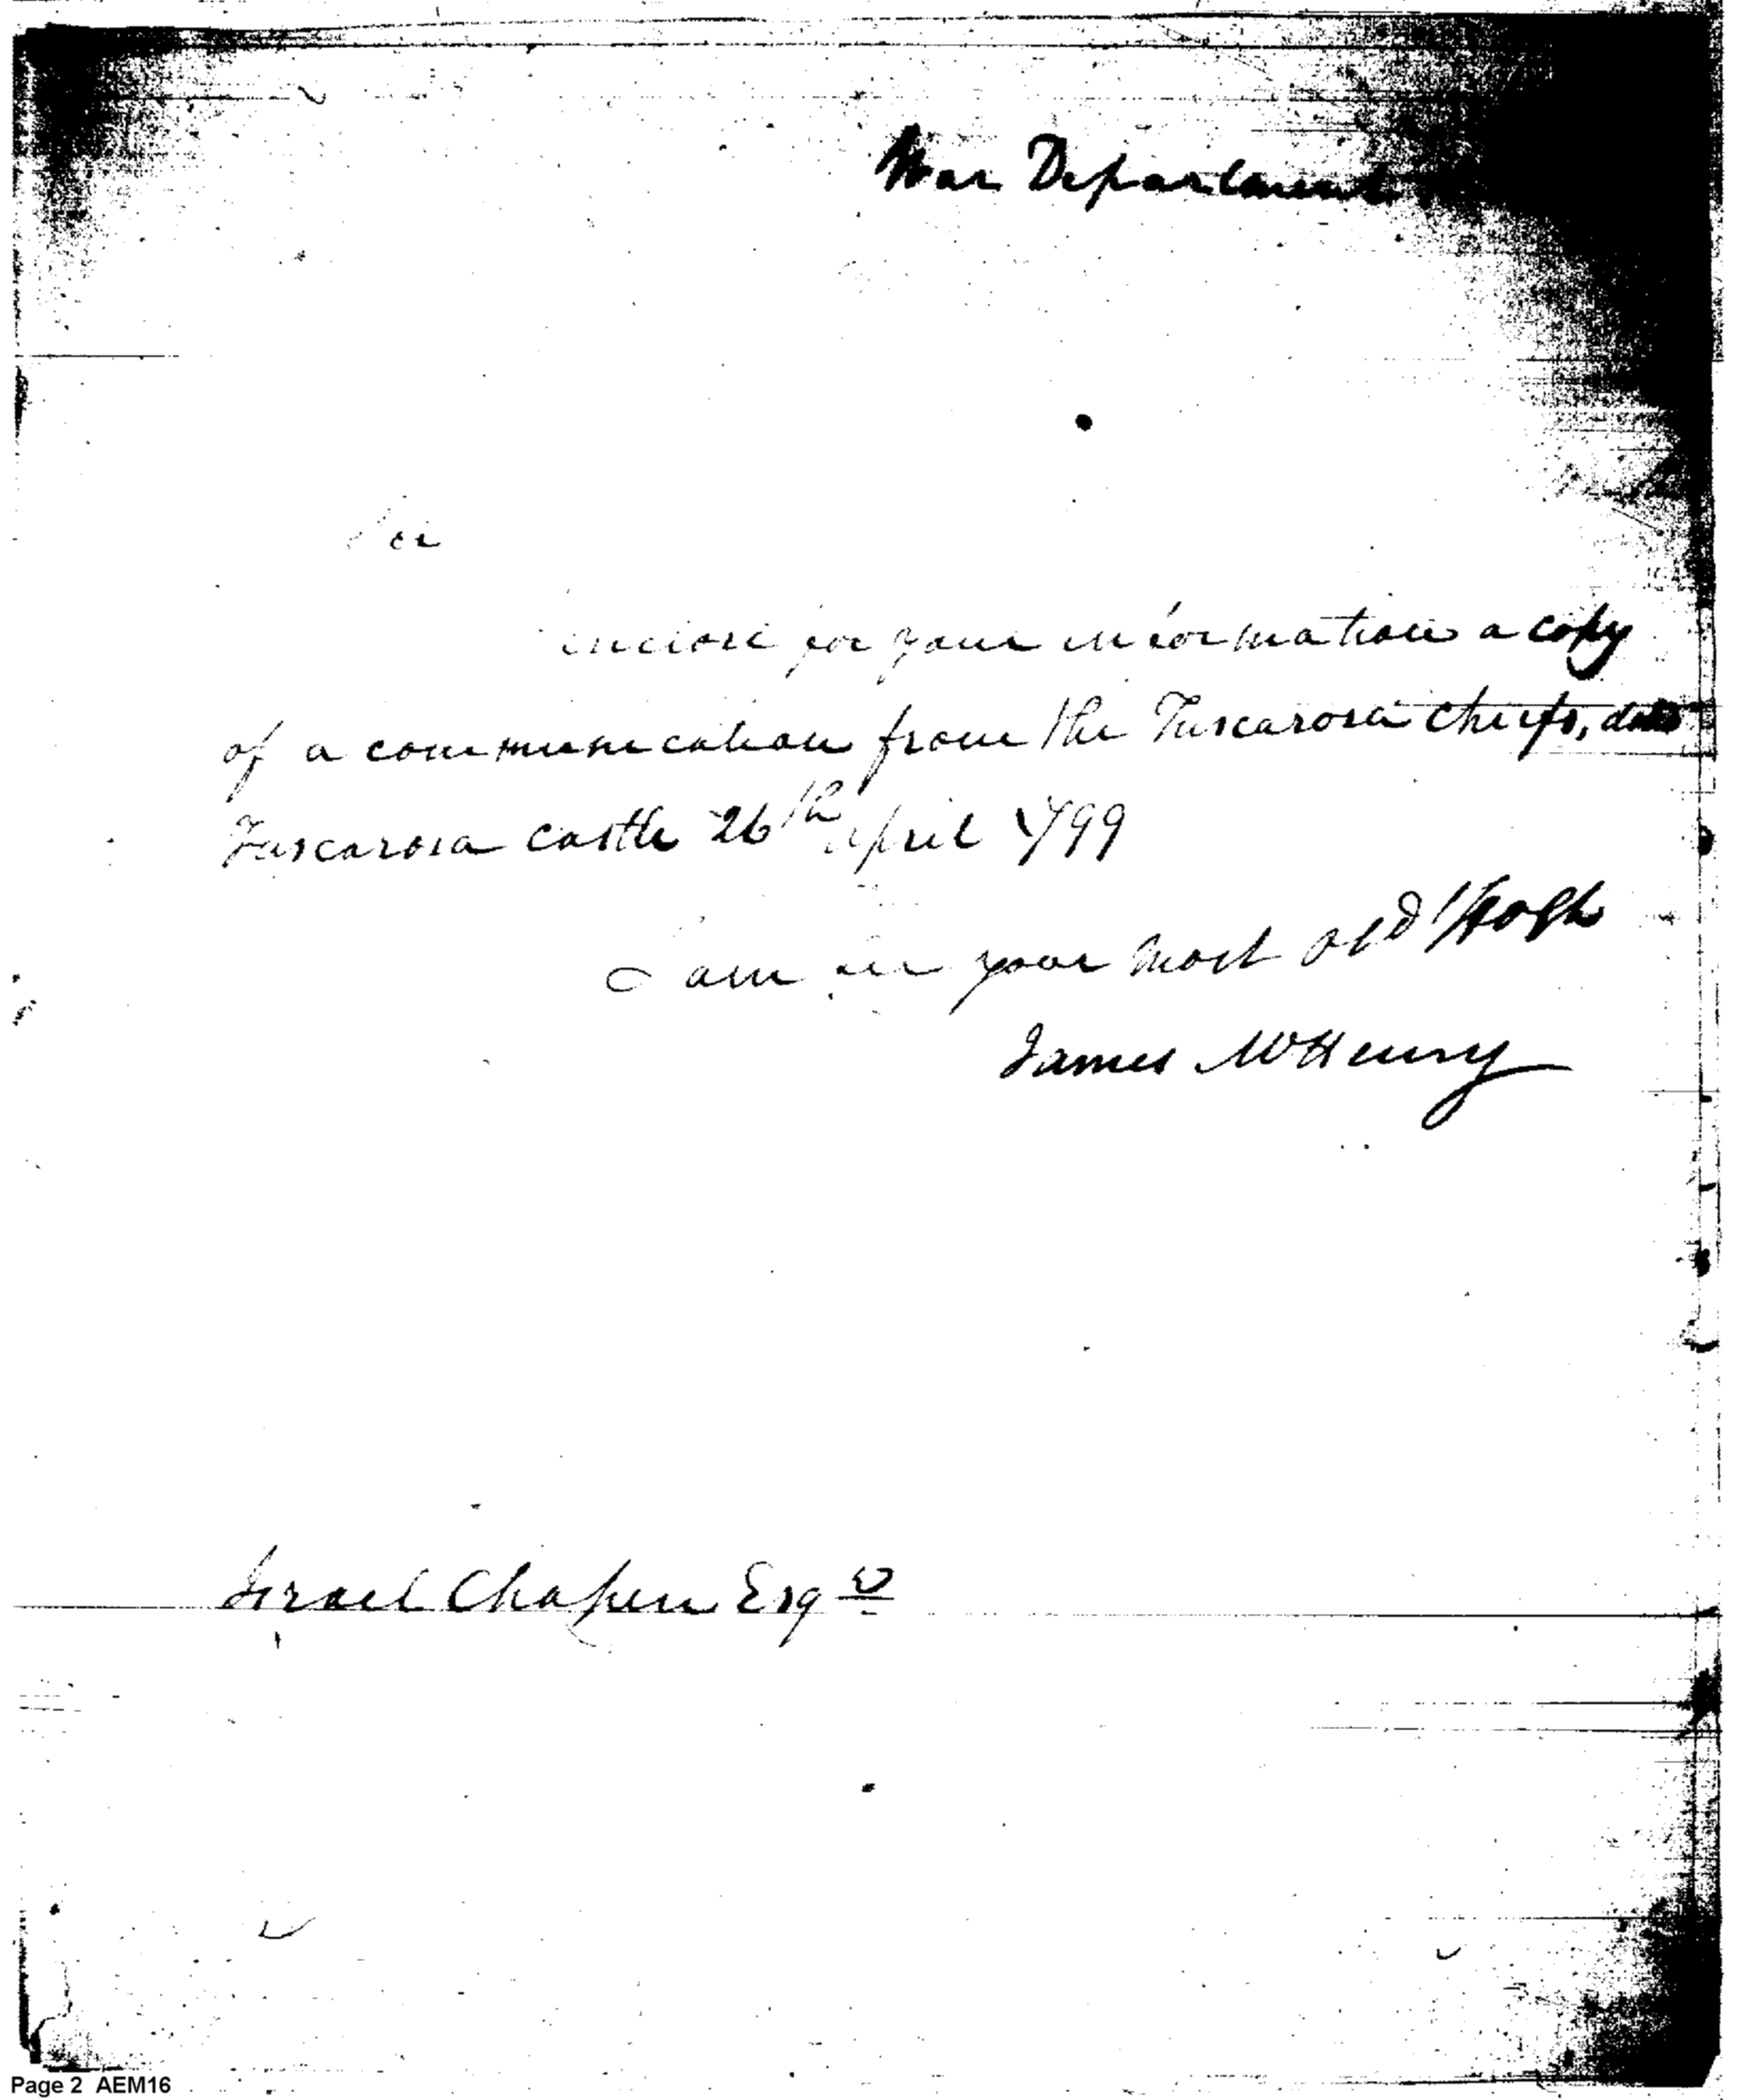 War Department
Sir
enclose for your information a copy
of a communication from the Tuscarora chiefs,
Tuscarora castle 26th April 1799
I am Sir your most
James McHenry
Israel Chapin Esqr
Page 2 AEM16